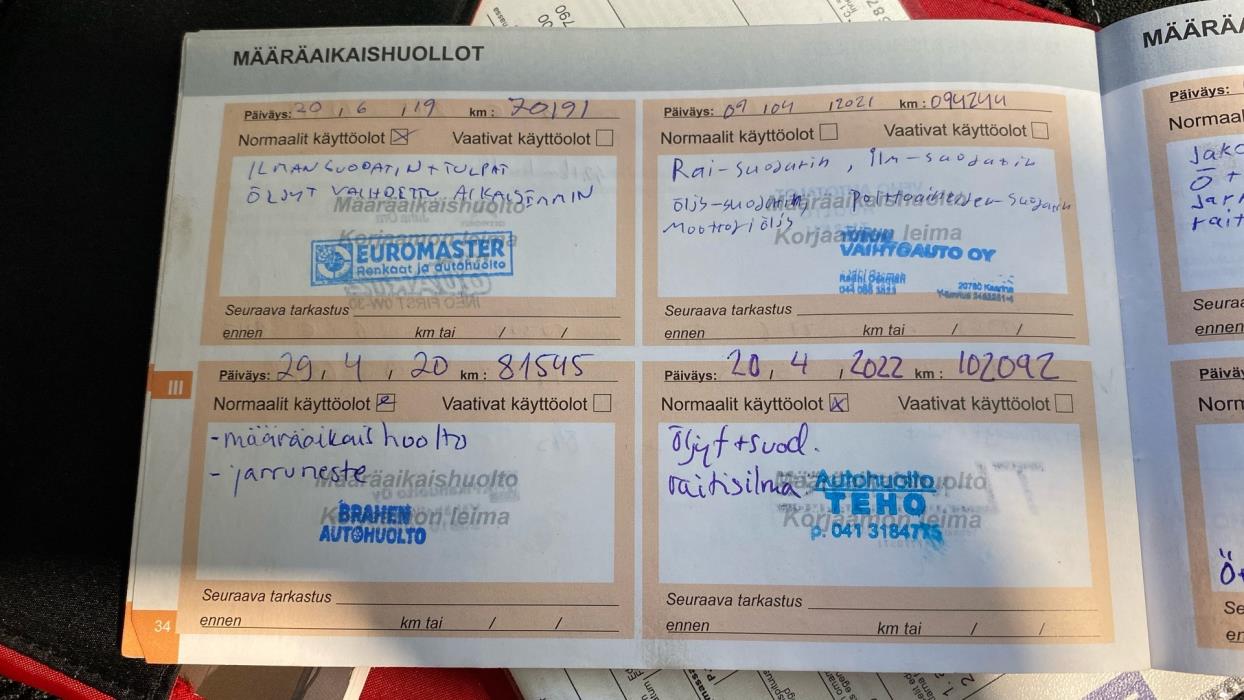 MÄÄRÄAIKAISHUOLLOT
Päiväys: 20 , 6 , 19 km : 70191
Normaalit käyttöolot Vaativat käyttöolot
ILMANSUODATIN + TULPAT
ÖLJYT VAIHDETTU AIKAISEMMIN
Määräaikaishuolto
Korjaamon leima
EUROMASTER
Renkaat ja autohuolto
Seuraava tarkastus
ennen km tai / /
Päiväys: 09 , 04 , 2021 km : 094244
Normaalit käyttöolot Vaativat käyttöolot
Rai-suodatin , ilm-suodatin
öljs-suodatin, Polttoaineeden-suodatin
moottoriöljs
Määräaikaishuolto
Korjaamon leima
TURUN
VAIHTOAUTO OY
20780 Kaarina
Seuraava tarkastus
ennen km tai / /
III
Päiväys: 29 , 4 , 20 km : 81545
Normaalit käyttöolot Vaativat käyttöolot
- määräaikaishuolto
- jarruneste
Määräaikaishuolto
Korjaamon leima
BRAHEN
AUTOHUOLTO
Seuraava tarkastus
ennen km tai / /
Päiväys: 20 , 4 , 2022 km : 102092
Normaalit käyttöolot Vaativat käyttöolot
öljyt+suod.
raitisilma
Määräaikaishuolto
Korjaamon leima
Autohuolto
TEHO
p. 041 3184775
Seuraava tarkastus
ennen km tai / /
34
MÄÄRÄA
Päiväys:
Normaal
Jako
Ö +
Jarr
rait
Seuraa
ennen
Päivä
Norm
Ö+
Se
en
790